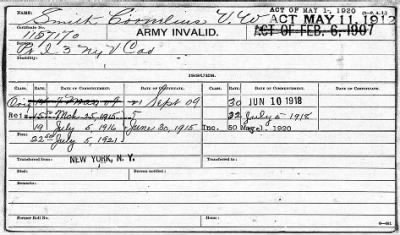 NAME: Smith Cornelius V.W. ACT OF MAY 1, 1920
Certificate No. ARMY INVALID. ACT MAY 11, 1912
1157170 ACT OF FEB. 6, 1907
I 3 Ny V Cav
Disability:
CLASS. RATE. DATE OF COMMENCEMENT. DATE OF CERTIFICATE. CLASS. RATE. DATE OF COMMENCEMENT. DATE OF CERTIFICATE.
Orig 09 21 Sept 09 30 JUN 10 1918
Reis 15 Mch 25, 1915 32 July 5 1918
19 July 5, 1916 June 30, 1915 Inc. 50 1920
22 July 5, 1921
Transferred from: NEW YORK, N. Y. Reason notified: Transferred to:
Died:
Former Roll No. Home: